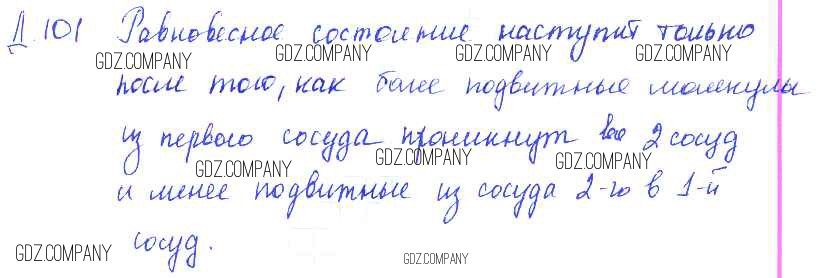 Д.101 Равновесное состояние наступит только
после того, как более подвитные молекулы
из первого сосуда проникнут во 2 сосуд
и менее подвитные из сосуда 2-го в 1-й
сосуд.
GDZ.COMPANY GDZ.COMPANY GDZ.COMPANY GDZ.COMPANY
GDZ.COMPANY GDZ.COMPANY GDZ.COMPANY
GDZ.COMPANY GDZ.COMPANY